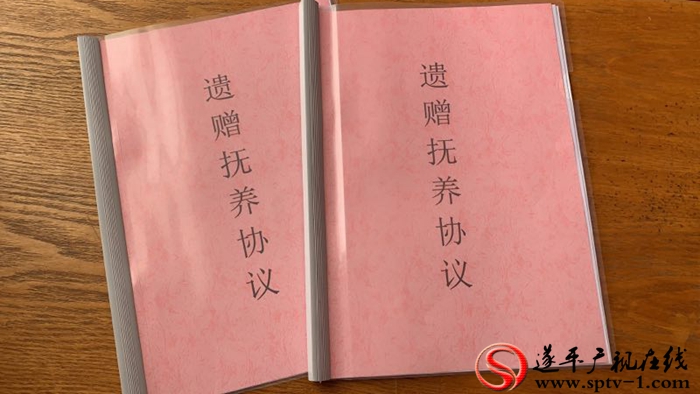 遗赠抚养协议
遗赠抚养协议
遂平广视在线
www.sptv-1.com